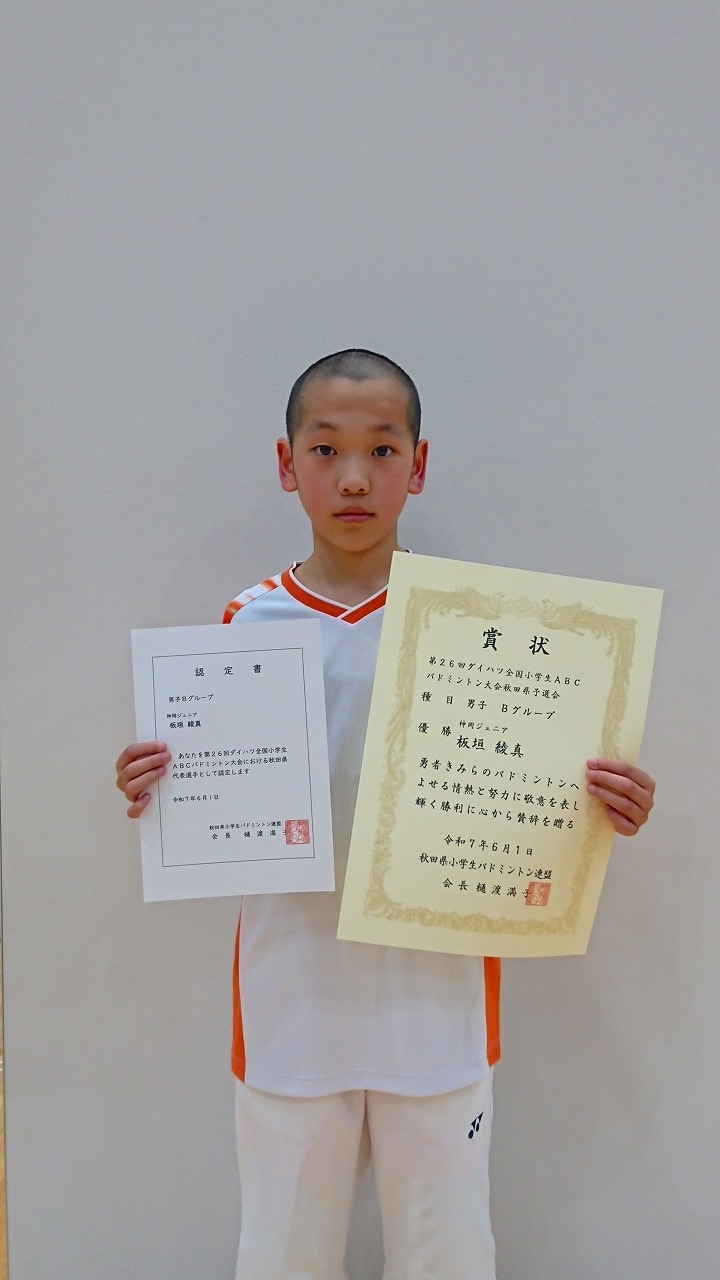 認定書
男子Bグループ
神岡ジュニア
板垣 綾真
あなたを第26回ダイハツ全国小学生
ABCバドミントン大会における秋田県
代表選手として認定します
令和7年6月1日
秋田県小学生バドミントン連盟
会長 樋渡満子
賞状
第26回ダイハツ全国小学生ABC
バドミントン大会秋田県予選会
種目 男子 Bグループ
神岡ジュニア
優勝 板垣 綾真
勇者きみらのバドミントンへ
よせる情熱と努力に敬意を表し
輝く勝利に心から賛辞を贈る
令和7年6月1日
秋田県小学生バドミントン連盟
会長 樋渡満子